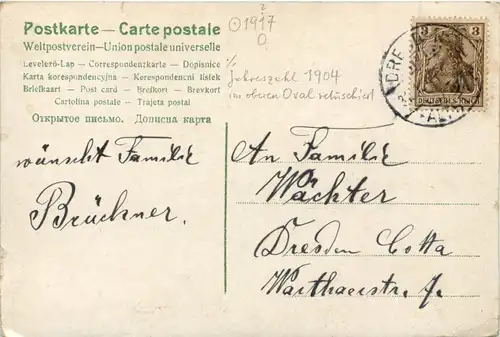 Postkarte — Carte postale
Weltpostverein — Union postale universelle
Levelező-Lap — Correspondenzkarte — Dopisnice
Karta korespondencyjna — Kerespondencni listek
Briefkaart — Post card — Brefkort — Brevkort
Cartolina postale — Trajeta postal
Открытое письмо. Дописна карта
1917
Jahreszahl 1904
im oberen Oval retuschiert
3 3
DEUTSCHES REICH
DRE
wünscht Familie
Brückner.
An Familie
Wächter
Dresden Cotta
Warthaerstr.